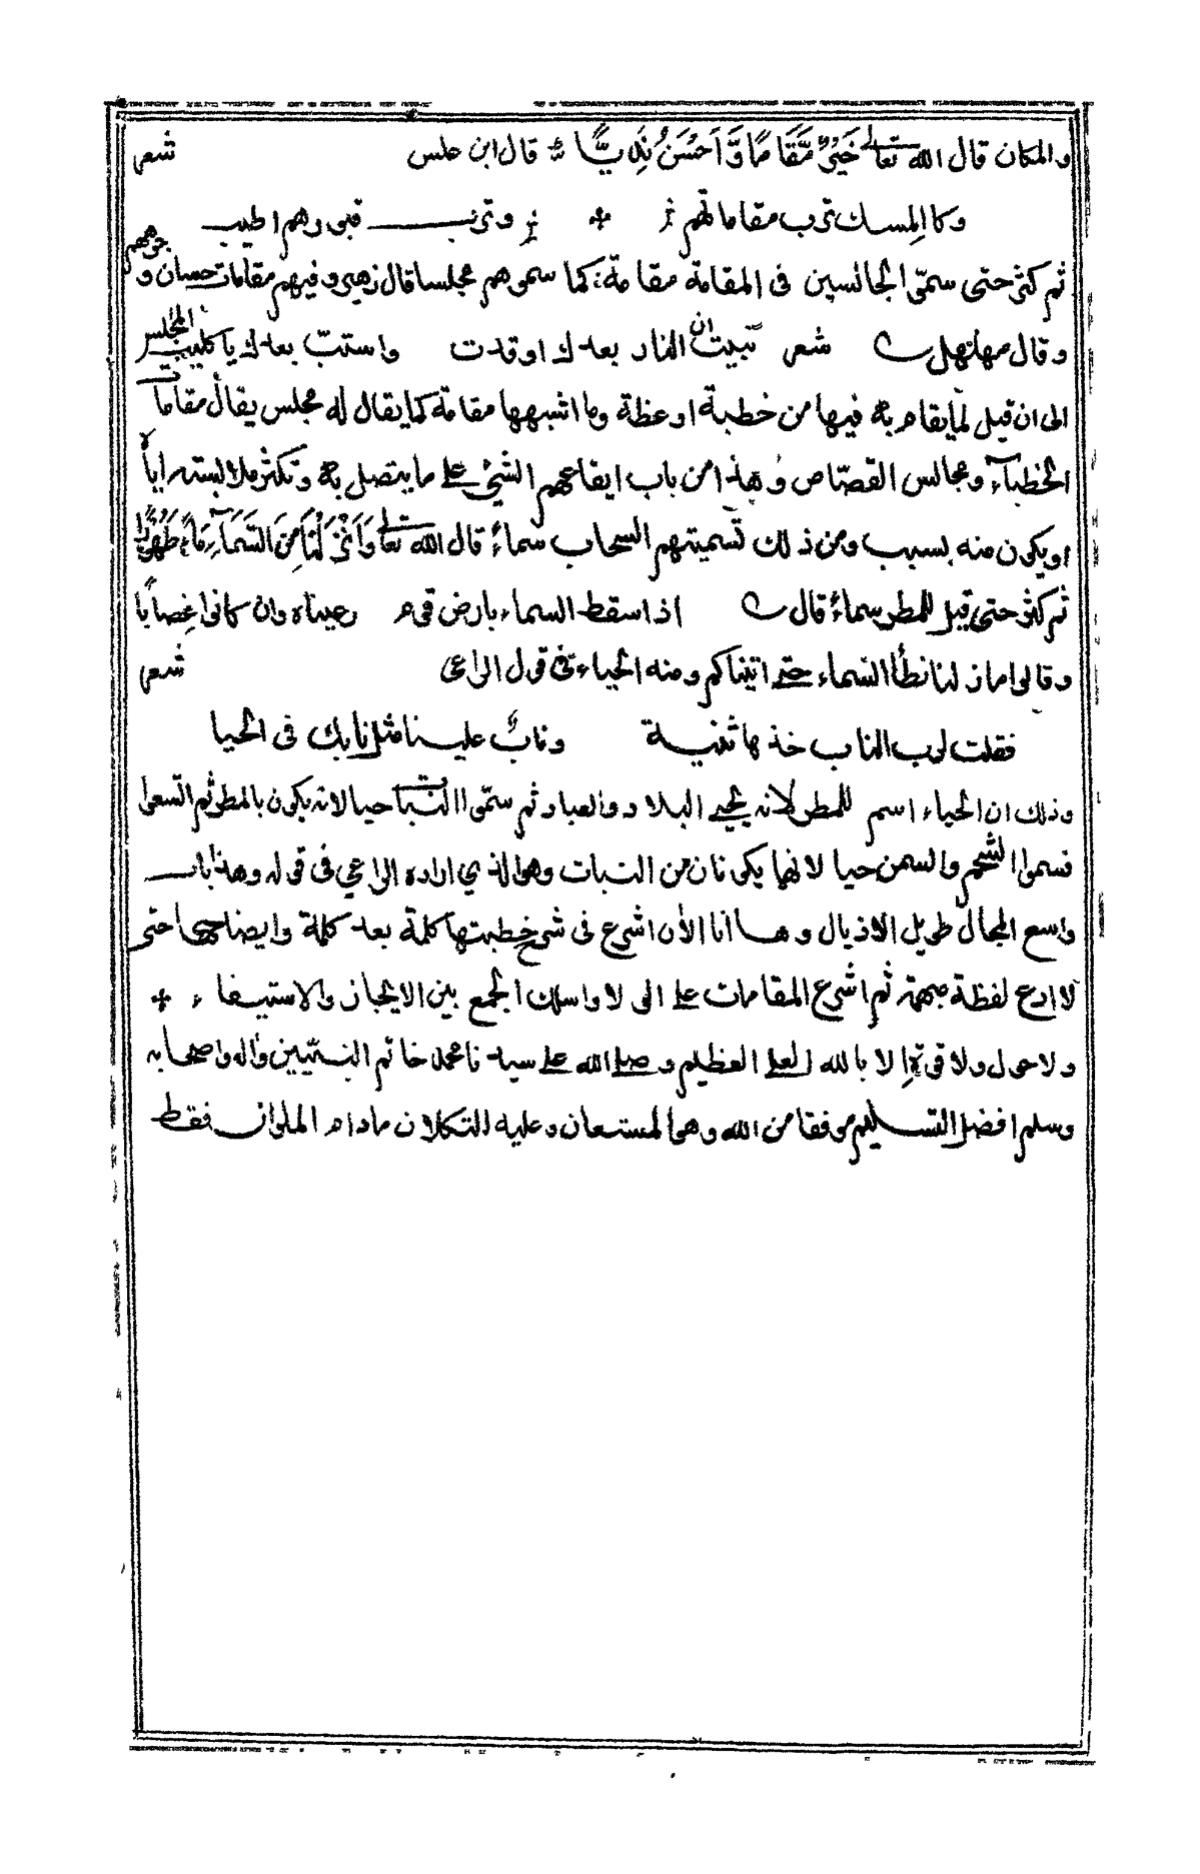 والمكان قال الله تعالى خَيْرٌ مَّقَامًا وَّاَحْسَنُ نَدِيًّا قال ابن علس شعر
وكالمسك ترب مقاماتهم وترب قبورهم اطيب
ثم كثر حتى سمّوا الجالسين فى المقامة مقامة كما سموهم مجلسا قال زهير وفيهم مقامات حسان وجوههم
وقال مهلهل شعر نبيت ان النار بعدك اوقدت واستبّ بعدك يا كليب المجلس
الى ان قيل لما يقام به فيها من خطبة او عظة وما اشبهها مقامة كما يقال له مجلس يقال مقامات
الخطباء ومجالس القصّاص وهذا من باب ايقاعهم الشئ على ما يتصل به وتكثر ملابسته اياه
او يكون منه بسبب ومن ذلك تسميتهم السحاب سماءً قال الله تعالى وَاَنْزَلْنَا مِنَ السَّمَآءِ مَآءً طَهُوْرًا
ثم كثر حتى قيل للمطر سماءً قال اذا سقط السماء بارض قوم رعيناه وان كانوا غضابا
وقالوا ما زلنا نطأ السماء حتى اتيناكم ومنه الحياء فى قول الراعى شعر
فقلت لرب الناب خذها ثنية وناب علينا مثل نابك فى الحيا
وذلك ان الحياء اسم للمطر لانه يحيى البلاد والعباد ثم سمّوا النبات حيا لانه يكون بالمطر ثم اتسعوا
فسموا الشحم والسمن حيا لانهما يكونان من النبات وهو الذي اراده الراعي فى قوله وهذا باب
واسع المجال طويل الاذيال وها انا الأن اشرع فى شرح خطبتها كلمة بعد كلمة وايضاحها حتى
لا ادع لفظة مبهمة ثم اشرع المقامات على الولا واسلك الجمع بين الايجاز والاستيفاء
ولا حول ولا قوة الا بالله العلى العظيم وصلى الله على سيدنا محمد خاتم النبيّين واله واصحابه
وسلم افضل التسليم موفقا من الله وهو المستعان وعليه التكلان مادام الملوان فقط